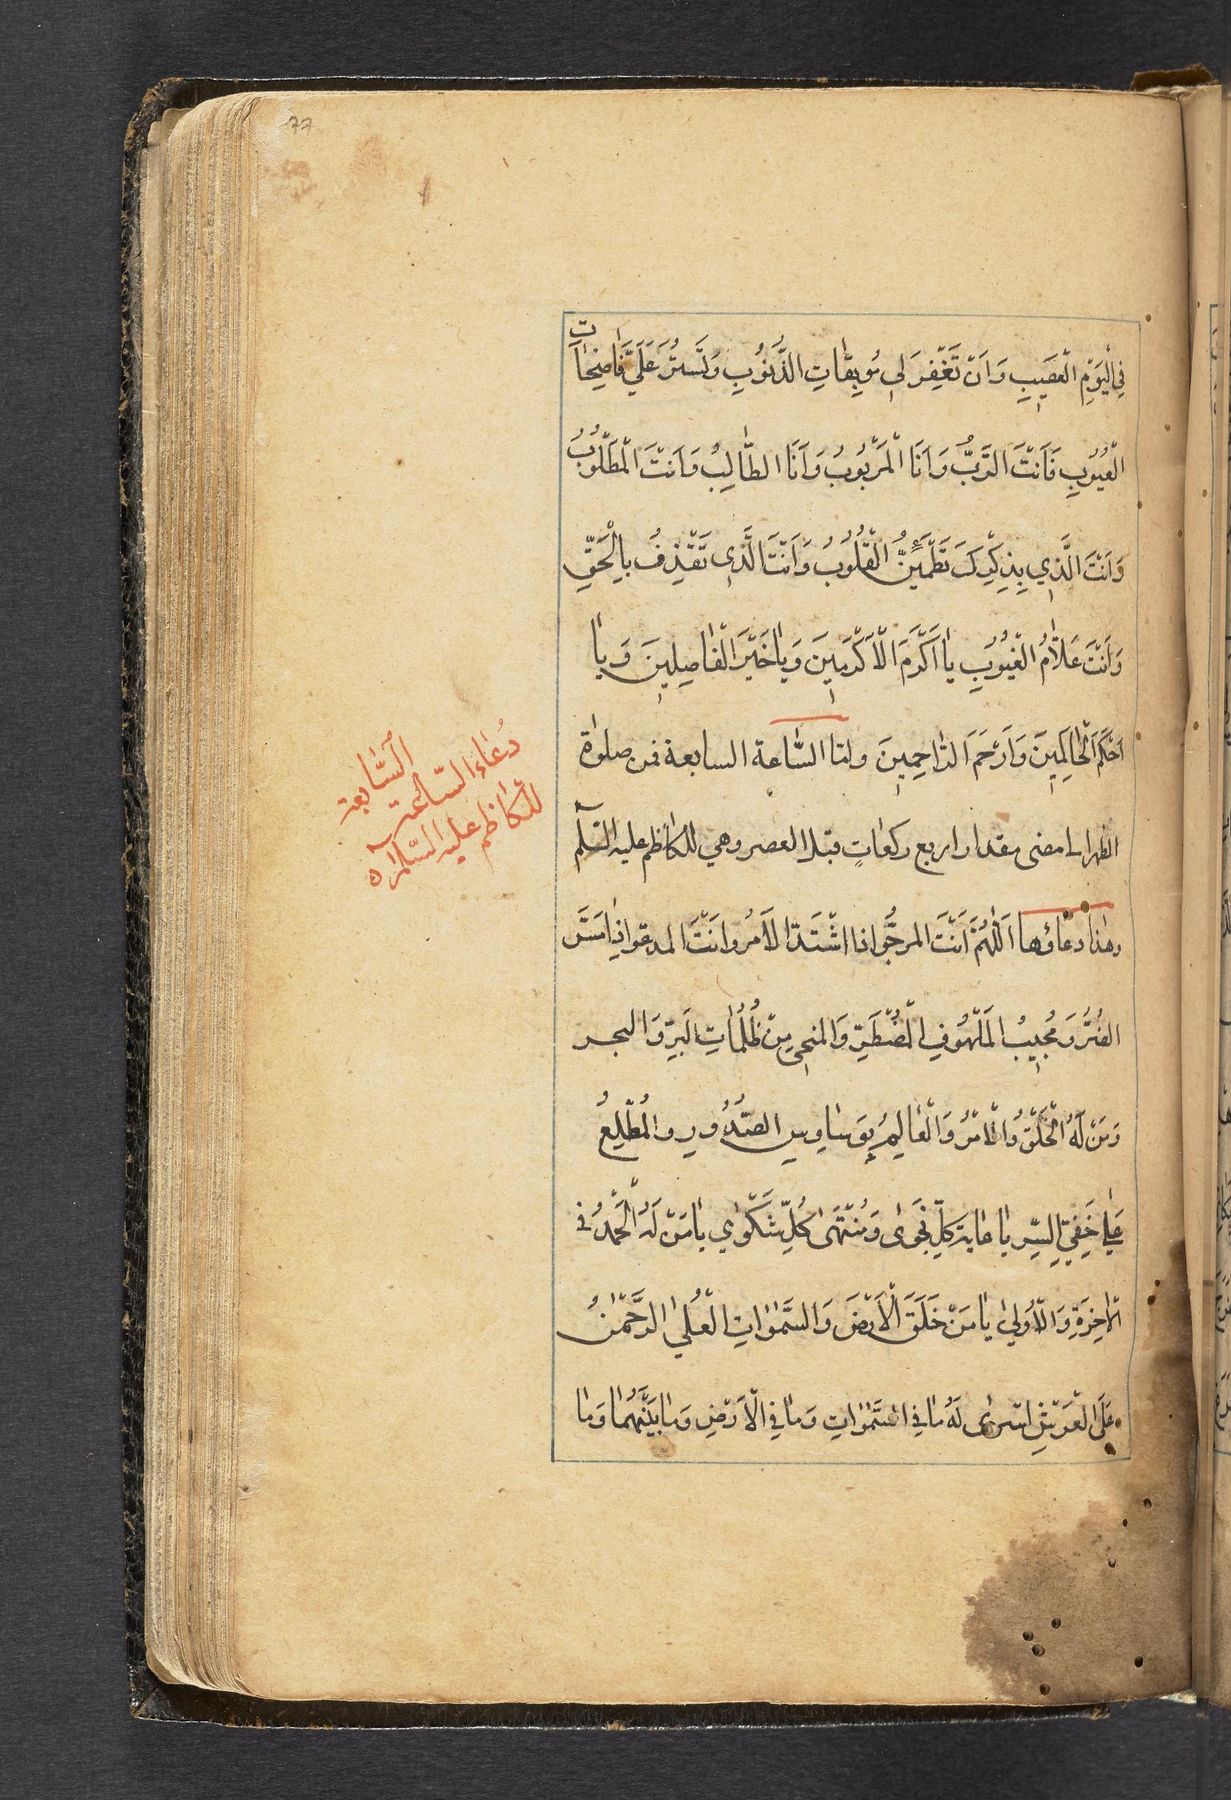 77
فِي الْيَوْمِ الْعَصِيبِ وَاَنْ تَغْفِرَ لِي مُوبِقَاتِ الذُّنُوبِ وَتَسْتُرَ عَلَيَّ فَاضِحَاتِ
الْعُيُوبِ فَاَنْتَ الرَّبُّ وَاَنَا الْمَرْبُوبُ وَاَنَا الطَّالِبُ وَاَنْتَ الْمَطْلُوبُ
وَاَنْتَ الَّذِي بِذِكْرِكَ تَطْمَئِنُّ الْقُلُوبُ وَاَنْتَ الَّذِي تَقْذِفُ بِالْحَقِّ
وَاَنْتَ عَلَّامُ الْغُيُوبِ يَا اَكْرَمَ الْاَكْرَمِينَ وَيَا خَيْرَ الْفَاصِلِينَ وَيَا
اَحْكَمَ الْحَاكِمِينَ وَاَرْحَمَ الرَّاحِمِينَ واما السَّاعة السابعة فمن صلوٰة
الظهر الى مضى مقدار اربع ركعاتٍ قبل العصر وهي للكاظم عليه السّلم
وهذا دعاؤها اَللّٰهُمَّ اَنْتَ المرجُّو اذا اشْتَدَّ الاَمْرُ وانَتْ المدعو اذِا مَسَّ
الضُرُّ وَمُجِيبُ الْمَلْهُوفِ الْمُضْطَرِّ وَالمنجى مِنْ ظُلُمَاتِ الْبَرِّ وَالبحر
وَمَنْ لَهُ الْخَلْقُ وَالْاَمْرُ وَالْعَالِمُ بِوَسَاوِسِ الصُّدُورِ والْمُطَّلِعُ
عَلىٰ خَفِيِّ السِّرِ يَا غاية كلِّ نجوَى وَمُنْتَهَىٰ كُلِّ شَكْوَاي يَا مَنْ لَهُ الْحَمْدُ فى
الْاٰخِرَةِ وَالْاُولىٰ يَا مَنْ خَلَقَ الْاَرْضَ وَالسَّمٰوَاتِ الْعُلىٰ الرَّحْمٰنُ
عَلَى الْعَرْشِ استوى لَهُ مَا فِي السَّمٰوَاتِ وَمَا فِي الْاَرْضِ وَمَا بَيْنَهُمَا وَمَا
دُعَاء السّاعة السَّابعة
للكاظم عليه السّلام